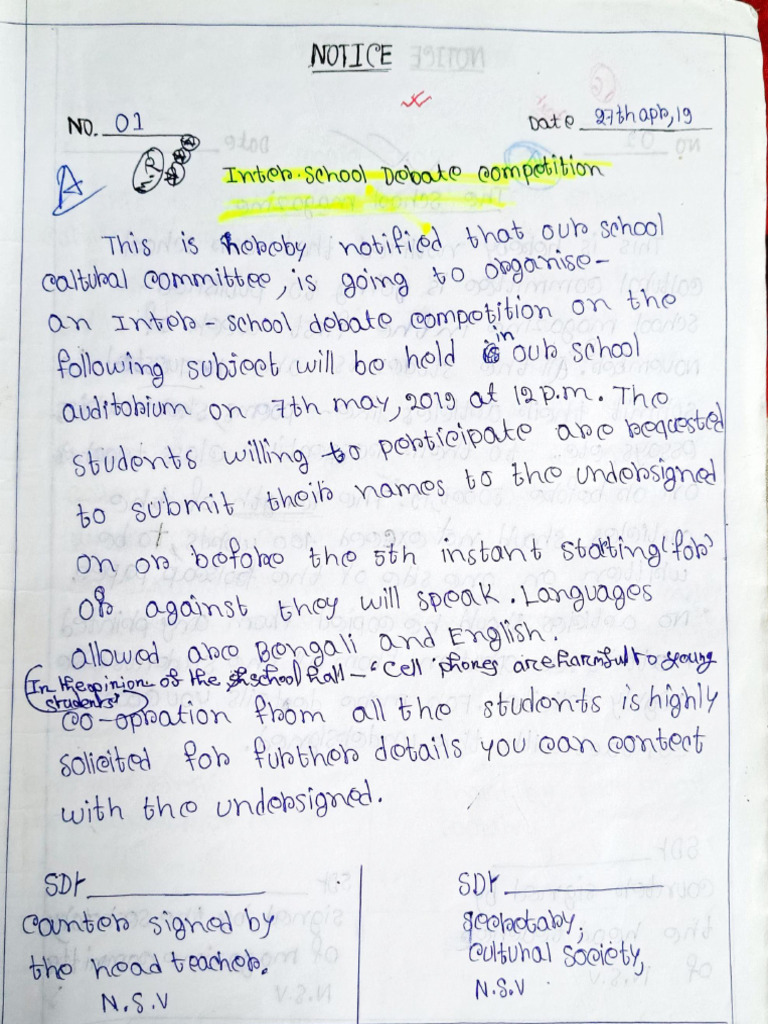 NOTICE
NO. 01
Date 27th apr, 19
A
Inter-School Debate competition
This is hereby notified that our school
caltural committee, is going to organise-
an Inter-school debate competition on the
following subject will be held in our school
auditorium on 7th may, 2019 at 12 p.m. The
students willing to perticipate are requested
to submit their names to the undersigned
on or before the 5th instant starting (for
or against they will speak. Languages
allowed are Bengali and English.
In the opinion of the school hall - "Cell phones are harmful to young
students"
co-opration from all the students is highly
solicited for further details you can contect
with the undersigned.
SD/-
counter signed by
the head teacher.
N.S.V
SD/-
secretary,
cultural society,
N.S.V